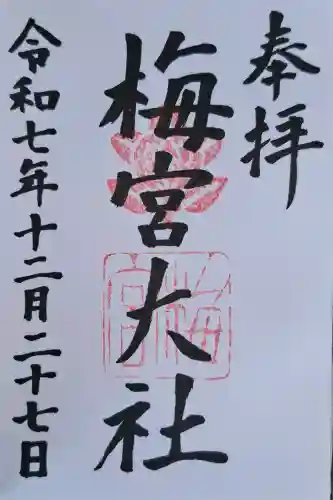 奉拝
梅宮大社
令和七年十二月二十七日
梅宮